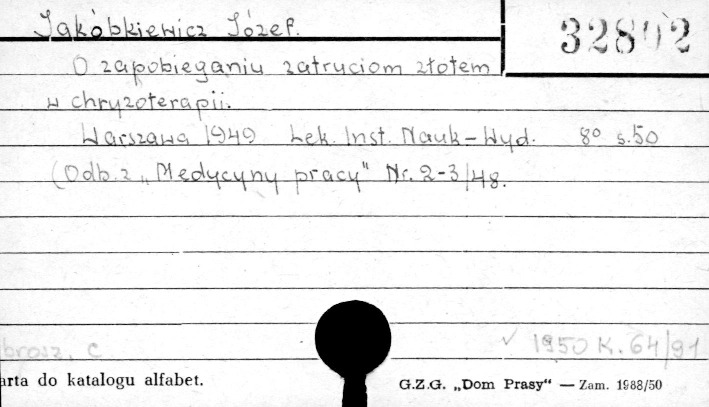 Jakóbkiewicz Józef.
32802
O zapobieganiu zatruciom złotem
w chryzoterapii.
Warszawa 1949 Lek. Inst. Nauk-Wyd. 8° s.50
(Odb. z „Medycyny pracy" Nr. 2-3/48.
brosz. c
✓ 1950 K. 64/91
arta do katalogu alfabet.
G.Z.G. „Dom Prasy" — Zam. 1988/50